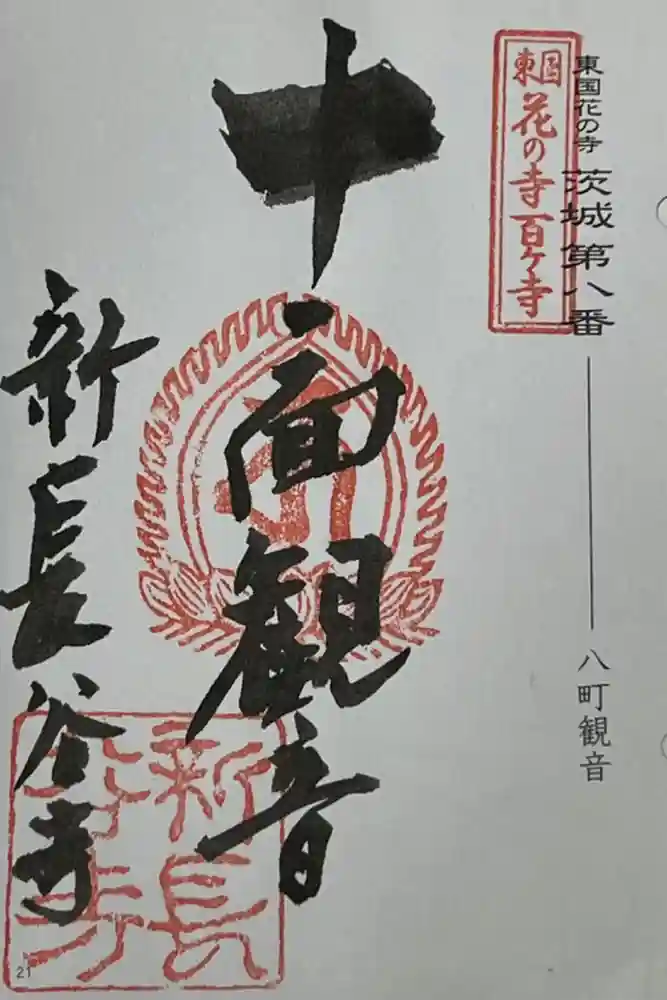 東国花の寺 茨城 第八番 八町観音
東国花の寺百ヶ寺
十一面観音
新長谷寺
新長
谷寺
21